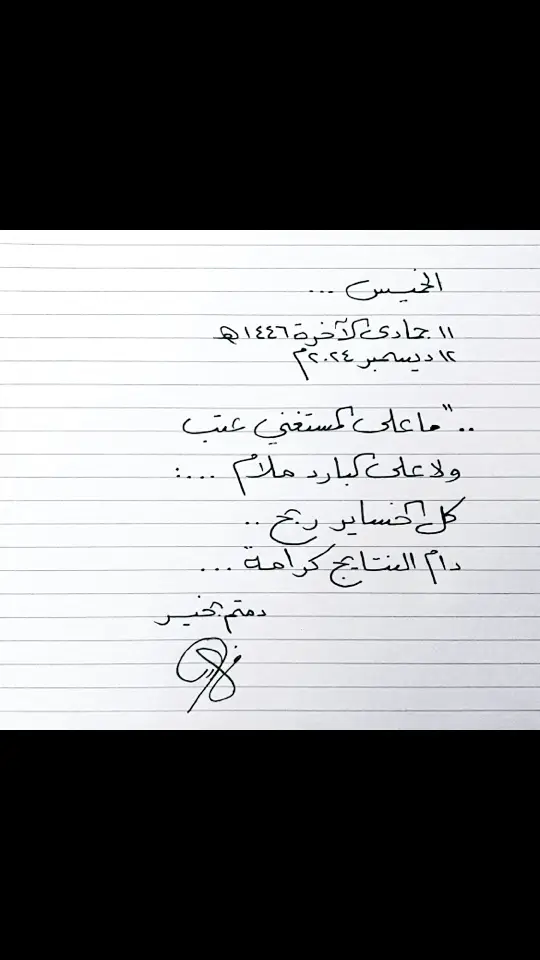 الخميس ...
١١ جمادى الآخرة ١٤٤٦هـ
١٢ ديسمبر ٢٠٢٤م
.." ما على المستغني عتب
ولا على البارد ملام ...:
كل الخساير ربح ..
دام النتايج كرامة ...
دمتم بخير